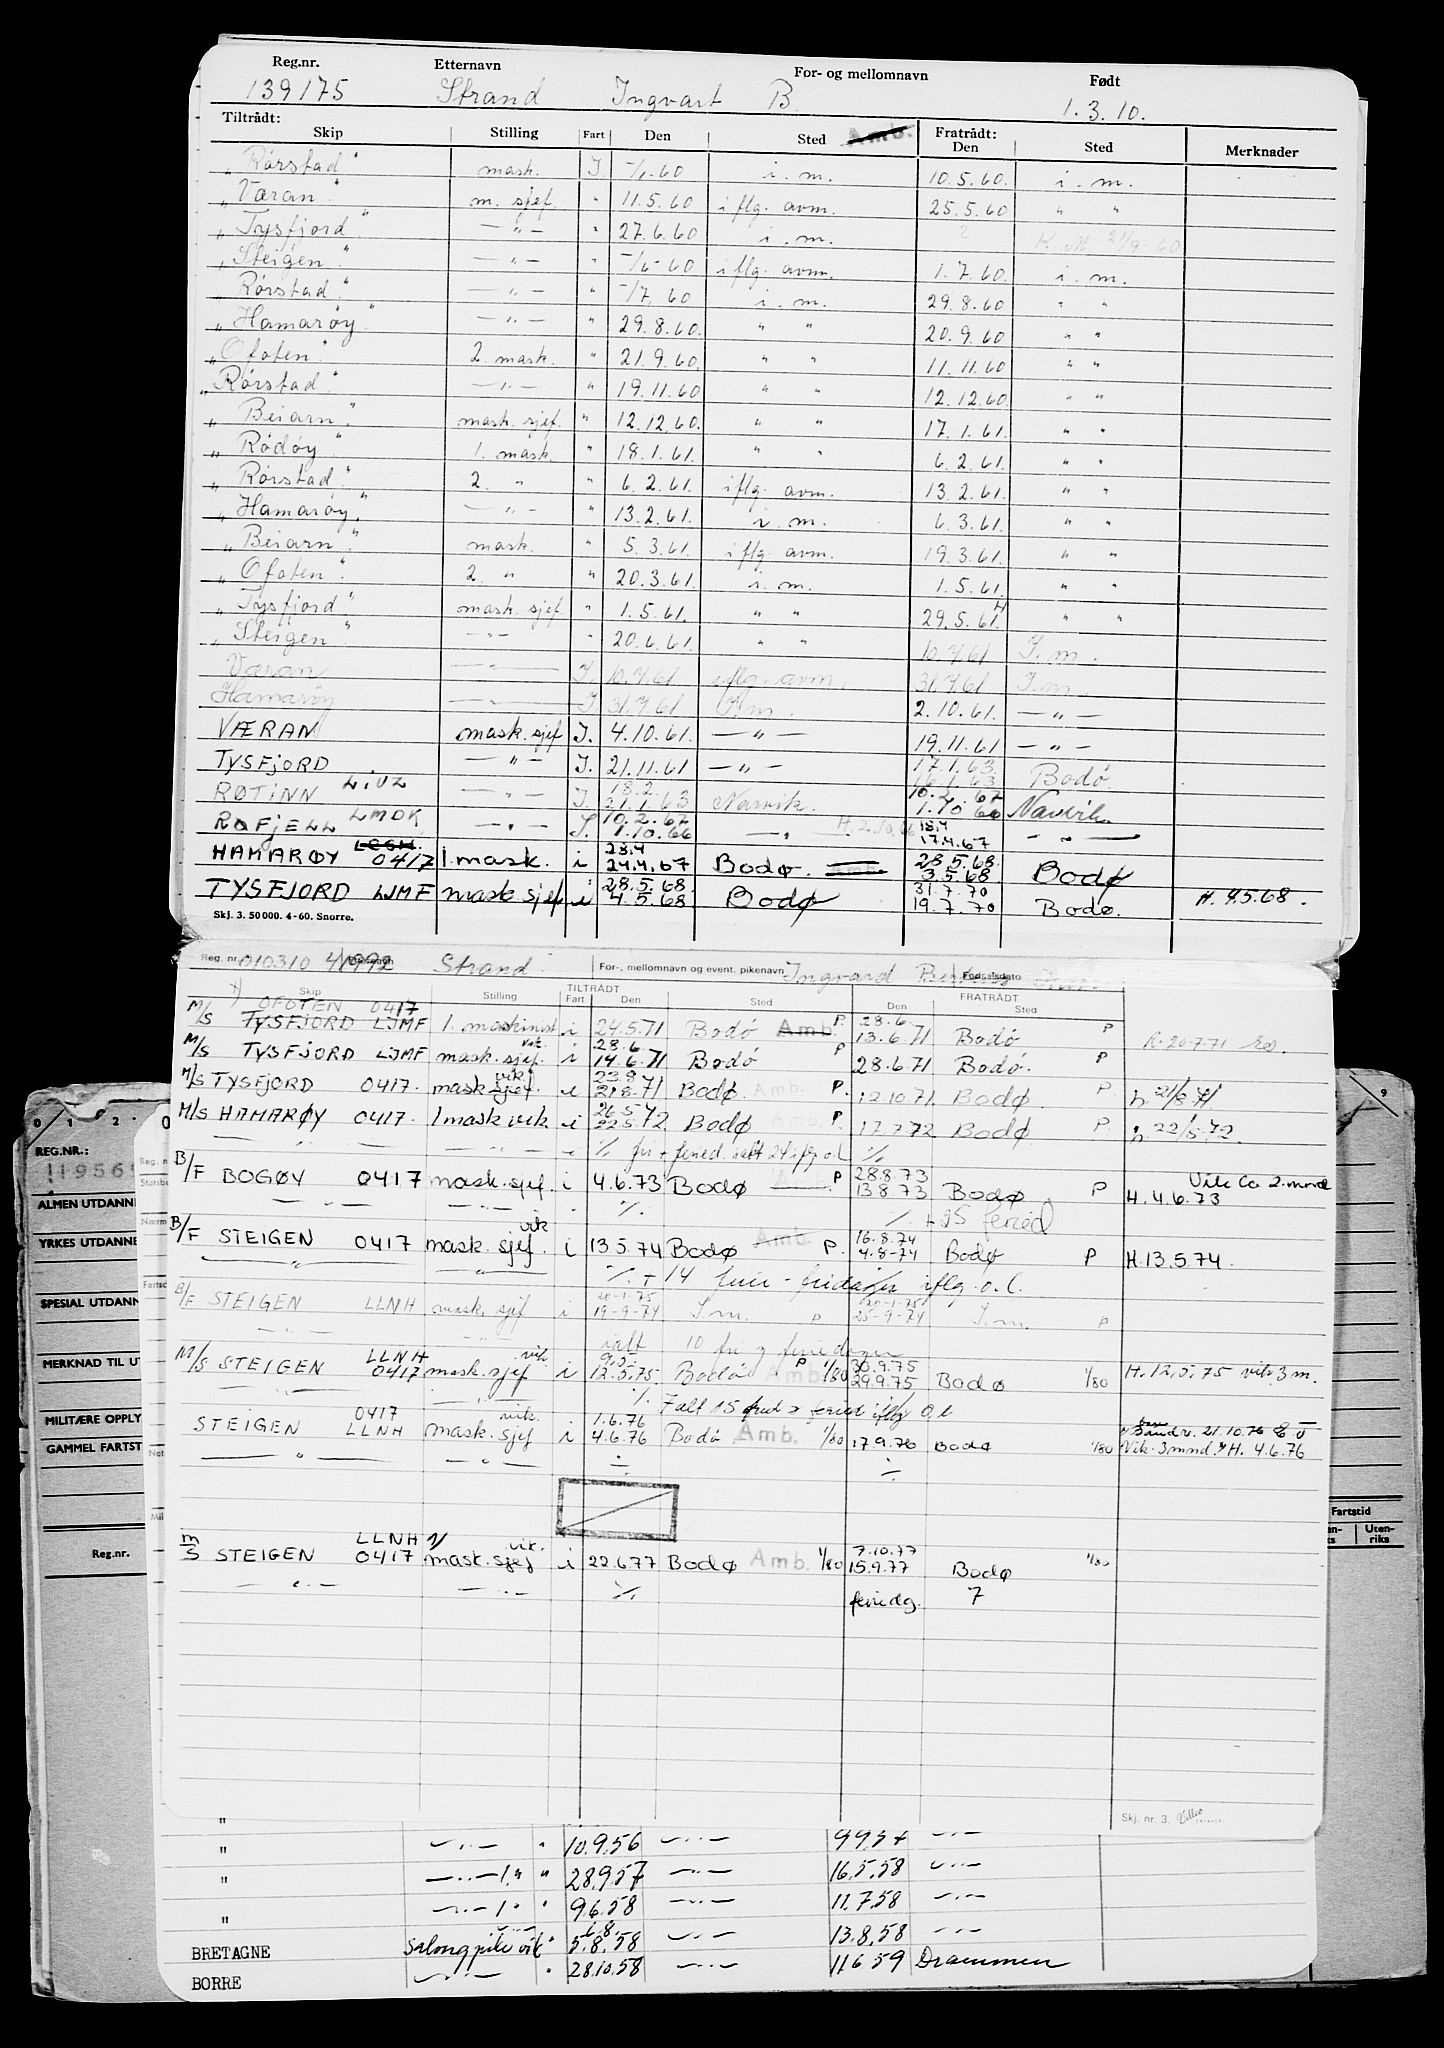 Reg.nr. Etternavn For- og mellomnavn Født
139175 Strand Ingvart B. 1.3.10.
Tiltrådt: Fratrådt:
Skip Stilling Fart Den Sted Amb. Den Sted Merknader
"Rørstad" mask. I. -/1.60 i.m. 10.5.60. i.m.
"Væran" m. sjef " 11.5.60 iflg. avm. 25.5.60 " "
"Tysfjord" — " — " 27.6.60 i.m. 2 21/9-60
"Steigen" — " — " iflg. avm. 1.7.60. i.m.
"Rørstad" — " — " -/7.60 i.m. 29.8.60 " "
"Hamarøy" — " — " 29.8.60. " " 20.9.60 " "
"Ofoten" 2. mask. " 21.9.60. " " 11.11.60 " "
"Rørstad" — " — " 19.11.60 " " 12.12.60. " "
"Beiarn" mask. sjef. " 12.12.60. " " 17.1.61. " "
"Rødøy" 1. mask. " 18.1.61. " " 6.2.61. " "
"Rørstad" 2. " " 6.2.61. iflg. avm. 13.2.61. " "
"Hamarøy" — " — " 13.2.61. i.m. 6.3.61. " "
"Beiarn" mask. " 5.3.61. iflg. avm. 19.3.61. " "
"Ofoten" 2. " " 20.3.61. i.m. 1.5.61. " "
"Tysfjord" mask. sjef. " 1.5.61. " " 29.5.61. " "
"Steigen" — " — " 20.6.61. " " 10.7.61 I.m.
Væran — " — I. 10.7.61 iflg. avm. 31.7.61 I.m.
Hamarøy — " — I. 31.7.61 I.m. 2.10.61. — " —
VÆRAN mask. sjef I. 4.10.61. — " — 19.11.61 — " —
TYSFJORD — " — I. 21.11.61 — " — 17.1.63. 16.1.63 Bodø
RØTINN LIUZ — " — I. 18.2. 21.1.63 Narvik. 10.2.67 1.10.66 Narvik.
ROFJELL LMDK — " — I. 10.2.67 1.10.66 — " H. 2.10.66 18.4 17.4.67 — " —
HAMARØY 0417 1. mask. i 23.4 24.4.67 Bodø. 28.5.68. 3.5.68. Bodø
TYSFJORD LJMF mask sjef i 28.5.68 4.5.68 Bodø 31.7.70 19.7.70 Bodø. H. 9.5.68.
Skj. 3. 50 000. 4-60. Snorre.
Reg. nr. 010310 41992 Strand For-, mellomnavn og event. pikenavn Ingvard Fødselsdato
TILTRÅDT FRATRÅDT
Skip Stilling Fart Den Sted Den Sted
OFOTEN 0417 28.6.
M/S TYSFJORD LJMF 1. maskinist i 24.5.71 Bodø Amb. P. 13.6.71 Bodø P R. 20-7-71
vik. 28.6
M/S TYSFJORD LJMF mask. sjef. i 14.6.71 Bodø P 28.6.71 Bodø. P
vik 23.8
M/S TYSFJORD 0417. mask sjef. i 21.8.71 Bodø. Amb. P. 12.10.71 Bodø. P. h. 21/8.71
26.5.72
M/S HAMARØY 0417. 1 mask vik i 22.5.72 Bodø Amb. P. 17.7.72 Bodø P. h. 22/5.72.
— " — — " — i ./. fri + feried. ialt 24 iflg. o.l. ./.
28.8.73 Vik Ca 2. mnd
B/F BOGØY 0417 mask. sjef. i 4.6.73 Bodø P 13.8.73 Bodø P H. 4.6.73
— " — — " — ./. ./. + 95 feried
vik 16.8.74
B/F STEIGEN 0417 mask. sjef. i 13.5.74 Bodø Amb. P. 4.8-74 Bodø P H. 13.5.74.
— " — " ./. + 14 iflg. o.l.
20-1-75 20-1-75
B/F STEIGEN LLNH mask. sjef i 19-9-74 I.m. P 25-9-74 I.m. P
— " — " ialt 10 fri og feriedager
LLNH vik. 9.5. P 30.9.75
M/S STEIGEN 0417 mask. sjef i 12.5.75. Bodø Amb. 1/80 29.9.75 Bodø 1/80 H. 12.5.75 vik 3 m.
— " — — " — ./. I alt 15 frid og feried iflg o.l
0417 vik. 1.6.76
STEIGEN LLNH mask. sjef i 4.6.76 Bodø Amb. 1/80 17.9.76 Bodø 1/80 21.10.76
Vik. 3 mnd. H. 4.6.76
— " — ./. ./.
LLNH vik. 7.10.77
m/S STEIGEN 0417 mask. sjef i 22.6.77 Bodø Amb. 1/80 15.9.77 Bodø 1/80
— " — — " — ./. feriedg. 7
Skj. nr. 3.
"
" — " — " 10.9.56 — " — 9.9.57 — " —
" — " — 1. " " 28.9.57 — " — 16.5.58 — " —
" — " — 1. " " 9.6.58 — " — 11.7.58 — " —
" — " — 6.8.
BRETAGNE Salongpike vik " 5.8.58 — " — 13.8.58 — " —
BORRE — " — " 28.10.58 — " — 11.6.59 Drammen
0 1 2 0 9
REG.NR.:
119569
ALMEN UTDANNE
YRKES UTDANNE
SPESIAL UTDANN
MERKNAD TIL UT
MILITÆRE OPPLY
GAMMEL FARTST
Reg.nr.
Fartstid
Uten-
riks